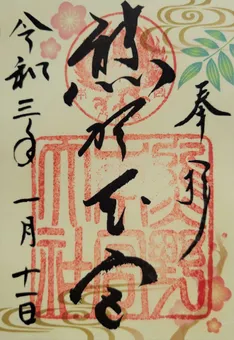 奉拝
熊野本宮
令和三年一月十一日